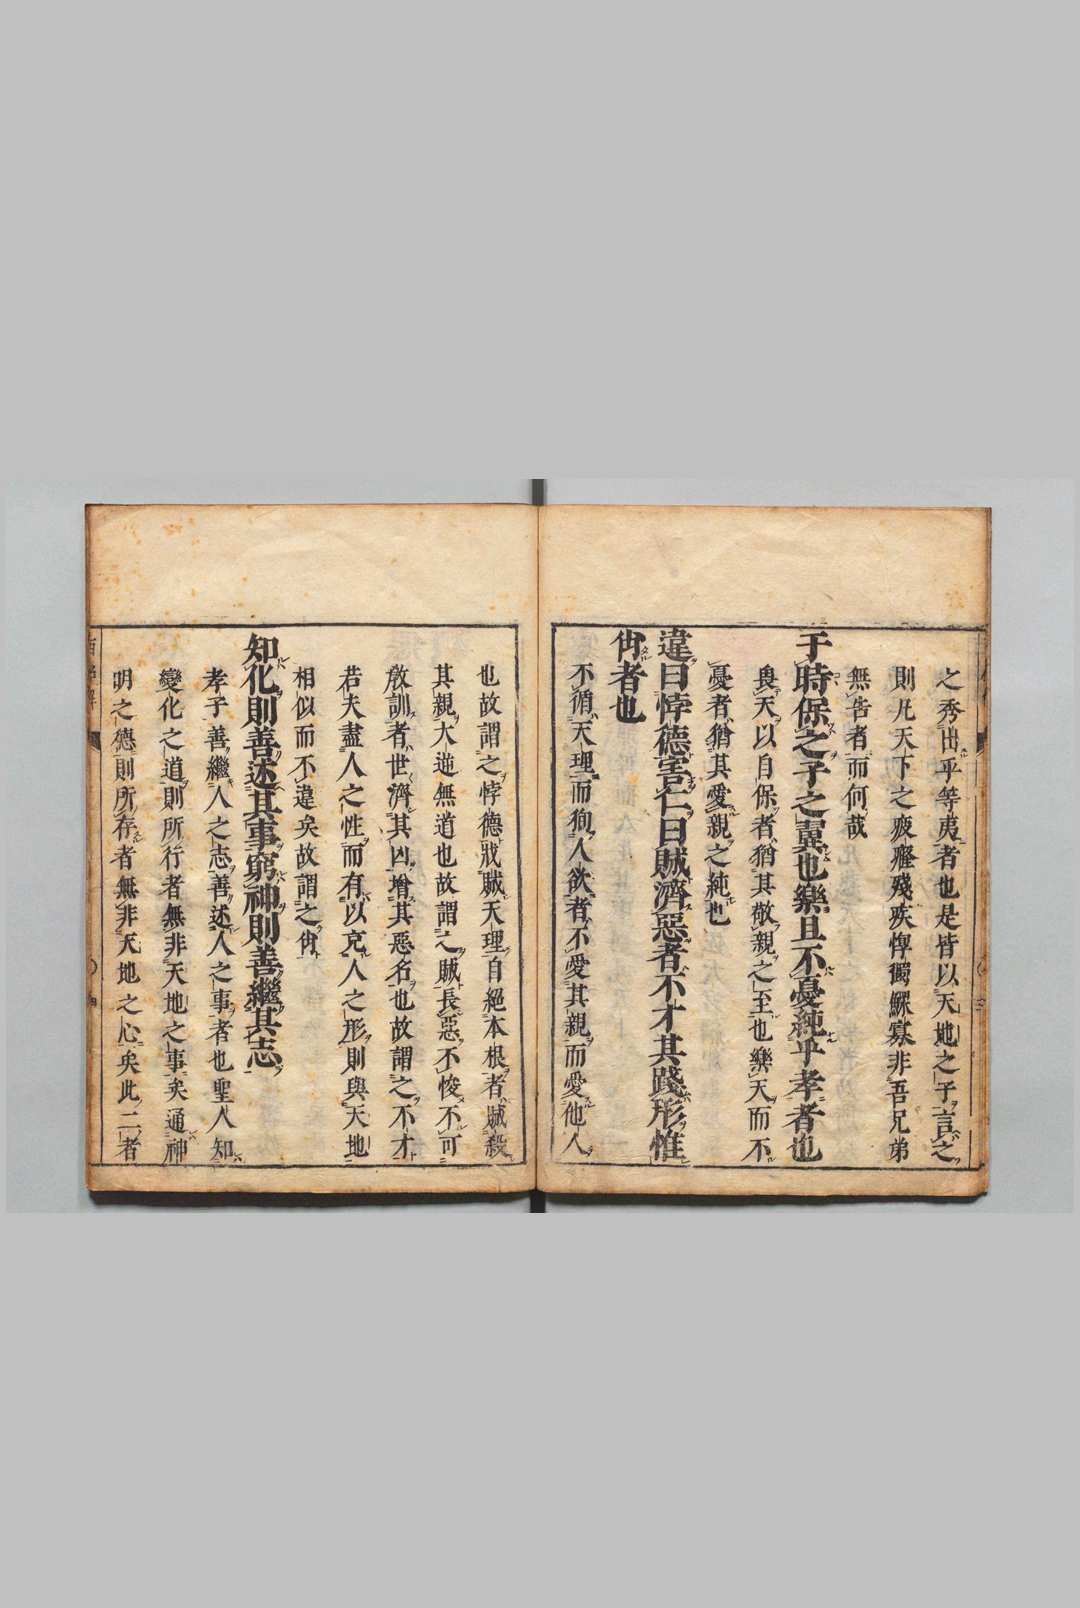 之秀出乎等夷者也是皆以天地之子言之
則凡天下之疲癃殘疾惸獨鰥寡非吾兄弟
無告者而何哉
于時保之子之翼也樂且不憂純乎孝者也
畏天以自保者猶其敬親之至也樂天而不
憂者猶其愛親之純也
違曰悖德害仁曰賊濟惡者不才其踐形惟
肖者也
不循天理而徇人欲者不愛其親而愛他人
也故謂之悖德戕賊天理自絕本根者賊殺
其親大逆無道也故謂之賊長惡不悛不可
敎訓者世濟其凶增其惡名也故謂之不才
若夫盡人之性而有以克人之形則與天地
相似而不違矣故謂之肖
知化則善述其事窮神則善繼其志
孝子善繼人之志善述人之事者也聖人知
變化之道則所行者無非天地之事矣通神
明之德則所存者無非天地之心矣此二者